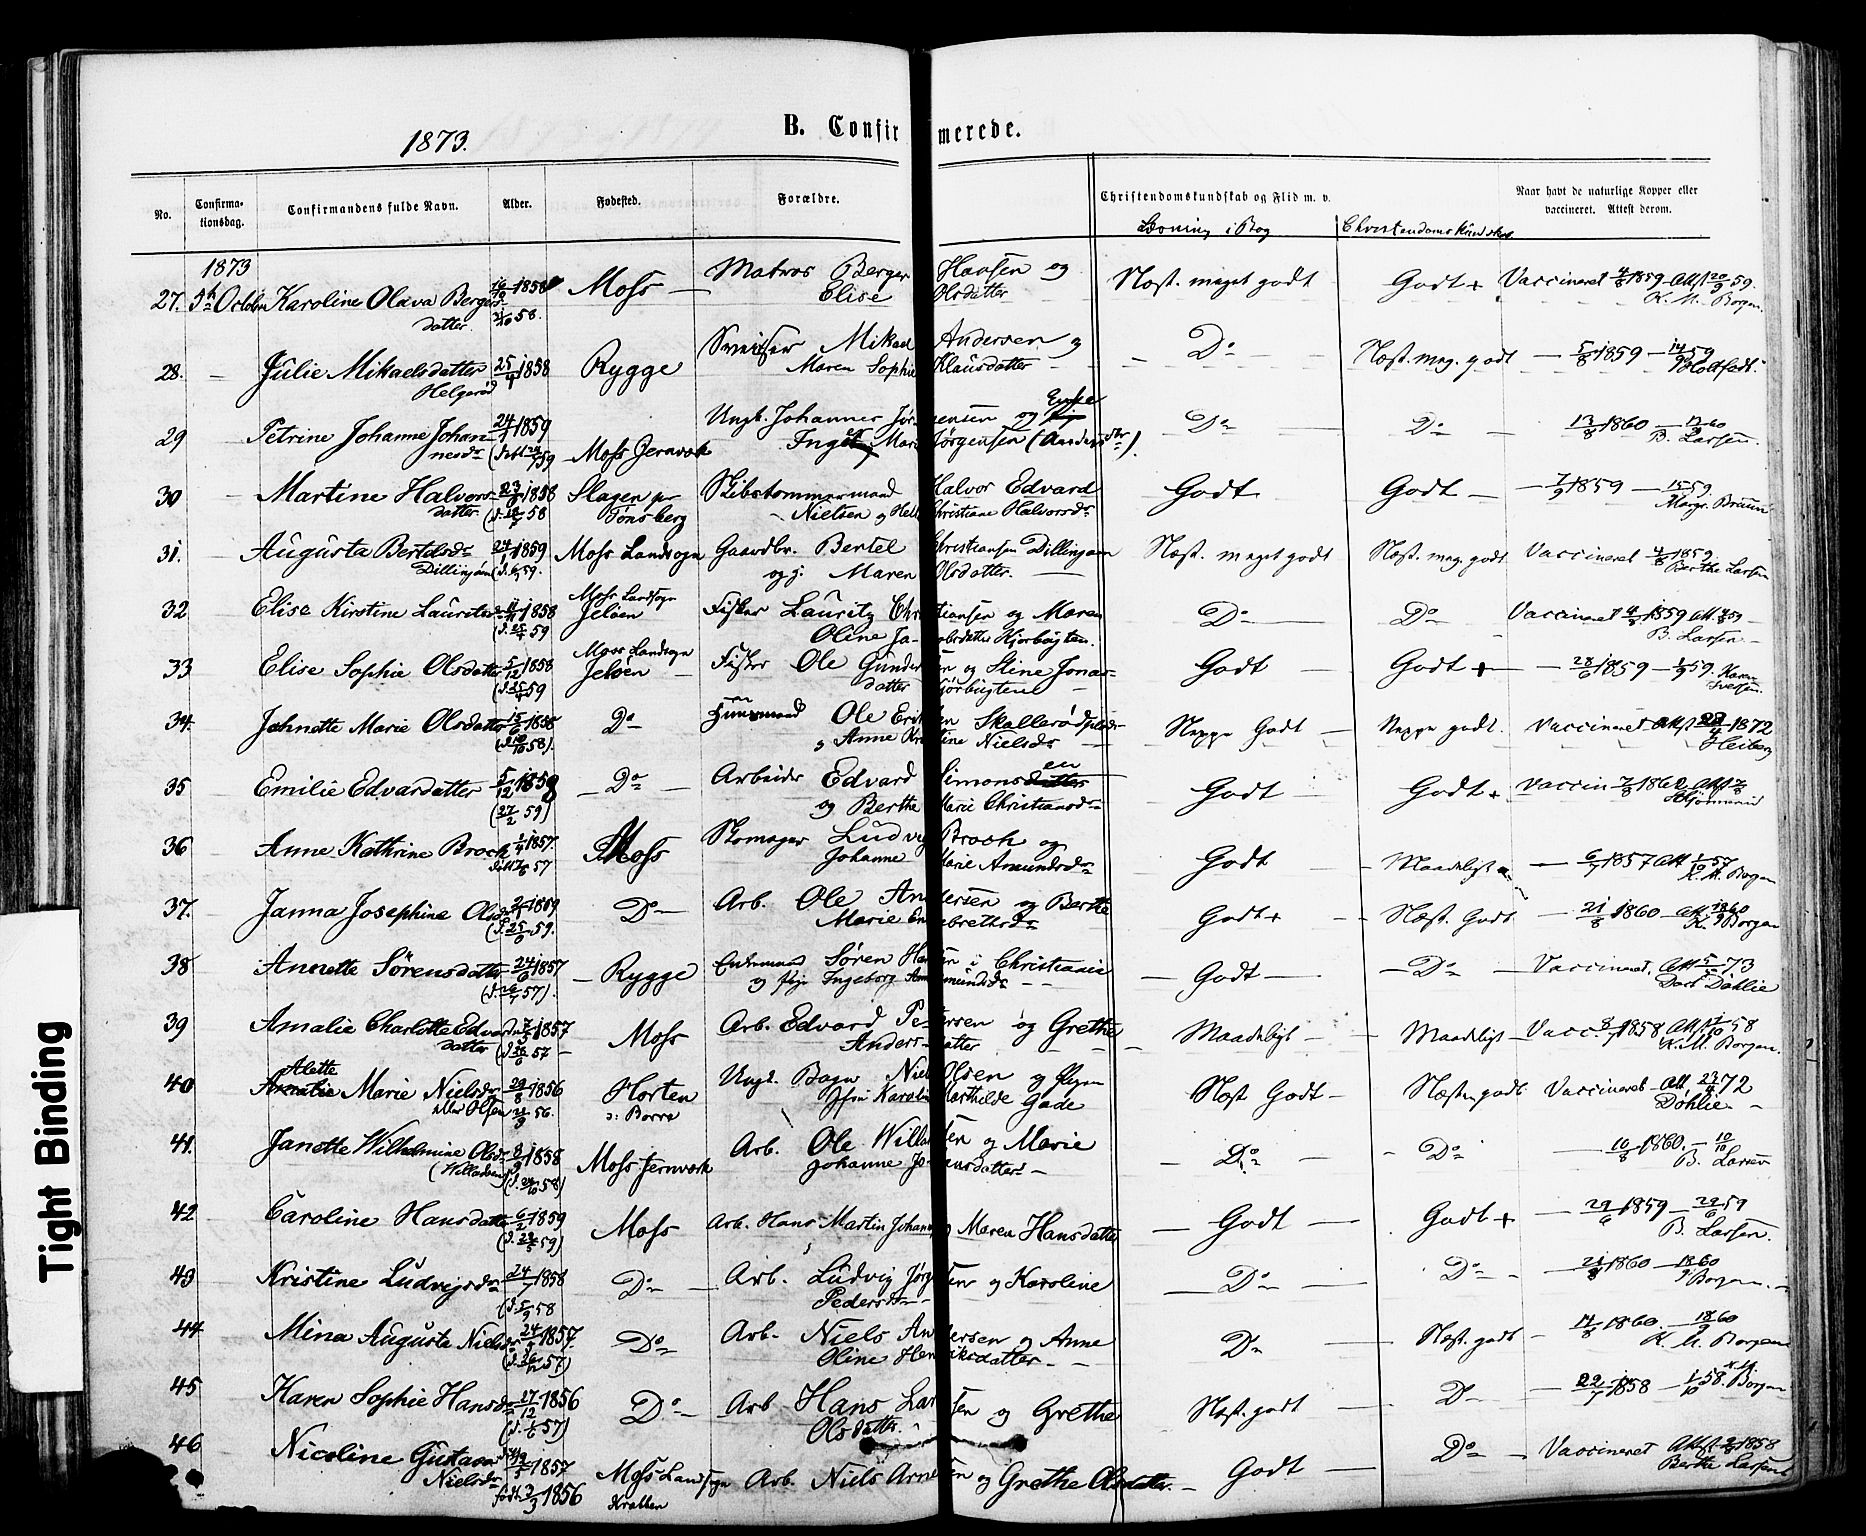 1873.
B. Confirmerede.
No. Confirmationsdag. Confirmandens fulde Navn. Alder. Fødested. Forældre. Christendomskundskab og Flid m. v. Naar havt de naturlige Kopper eller vaccineret. Attest derom.
Læsning i Bog Christendomskundskab
1873
27. 5te October Karoline Olava Bergersdatter 1858 Moss Matros Berger Hansen og Elise Olsdatter Næst. meget godt Godt + Vaccineret 4/8 1859 Att 20/9 59. K. M. Borgen.
28. Julie Mikaelsdatter Helgerød 25/4 1858 Rygge Mikael Andersen og Maren Sophie Klausdatter Do Næst. meg. godt 5/8 1859 14/9 59
29 Petrine Johanne Johannesdr 24/1 1859 Moss Jernverk Ungk. Johannes Jørgensen og Marie Jørgensen Do Do 13/8 1860 B. Larsen.
30 Martine Halvorsdatter 1858 Slagen pr Tønsberg Skibstømmermand Halvor Edvard Nielsen og Helle Christiane Halvorsdr Godt Godt 7/9 1859 15/9 59 Margr. Bruun
31. Augusta Bertelsdr Dillingøen 24/1 1859 Moss Landsogn Gaardbr. Bertel Christiansen Dillingøen og g. Maren Olsdatter. Næst meget godt Næst. meg. godt Vaccineret 4/8 1859. Berthe Larsen
32 Elise Kirstine Lauritzdr 1858 Moss Landsogn Jeløen Fisker Lauritz Christiansen og Maren Oline Jacobsdatter Kjorbugten. Do Do Vaccineret 4/8 1859 B. Larsen
33 Elise Sophie Olsdatter 5/12 1858 Moss Landsogn Jeløen Fisker Ole Gundersen og Stine Jonasdatter Kjorbugten Godt Godt + 28/6 1859 1/9 59. Karen Iversen.
34. Jahnette Marie Olsdatter Do Huusmand Ole Eriksen Skallerødpladsen og Anne Kristine Nielsdr Neppe Godt Neppe godt. Vaccineret Att 1872 Heiberg
35 Emilie Edvardatter 5/12 1858 (27/2 59) Do Arbeider Edvard Simonsen og Berthe Marie Christiansdr Godt Godt + Vaccin 7/8 1862
36 Anne Kathrine Broch 1857. Moss Skomager Ludvig Broch og Johanne Marie Amundsdr Godt Maadeligt 6/7 1857 Att 1/10 57 K. M. Borgen
37. Janna Josephine Olsdr Do Arb. Ole Andersen og Berthe Marie Engebretsdr Godt + Næst. Godt 21/8 1860 K. M. Borgen
38 Annette Sørensdatter 24/6 1857 (d. 26/7 57). Rygge Enkemand Søren Hansen i Christiania og Pige Ingeborg Amundsdr Godt Do Vaccineret. Att 5/5 73 Døhlie
39 Amalie Charlotte Edvardsdatter 1857 Moss Arb. Edvard Petersen og Grethe Andersdatter Maadeligt Maadeligt Vacc. 1858 Att 1/10 58 K. M. Borgen.
40 Alette Marie Nielsdr eller Olsen 1856 Horten o: Borre Ungk. Niels Olsen og Pigen Karoline Marthilde Gade Næst Godt Næsten godt Vaccineret Att 23/4 72 Døhlie
41. Janette Wilhelmine Olsdr (Willadsen) 1858 Moss Jernverk Arb. Ole Willadsen og Marie Johanne Johansdatter Do Do 10/8 1860. 10/10 B. Larsen
42 Caroline Hansdatter 6/2 1859 Moss Arb. Hans Martin Johansen og Maren Hansdatter Godt Godt + 29/6 1859 29/6 59 B. Larsen.
43 Kristine Ludvigsdr 24/7 1858 Do Arb. Ludvig Jørgensen og Karoline Pedersdr Do Do 1860 Borgen.
44 Mina Augusta Nielsdr 1857. Do Arb. Niels Andersen og Anne Oline Henriksdatter Do Næst. godt 14/8 1860. K. M. Borgen
45 Karen Sophie Hansdr 27/12 1856 Do Arb Hans Larsen og Grethe Olsdatter. Næst. godt Do 22/7 1858 1/10 58. K. M. Borgen
46 Nicoline Gustava Nielsdr 1857 født 3/3 1856 Moss Landsogn Krabben Arb. Niels Arnesen og Grethe Olsdatter. Godt Do Vaccineret Attest 1858 Berthe Larsen
Tight Binding